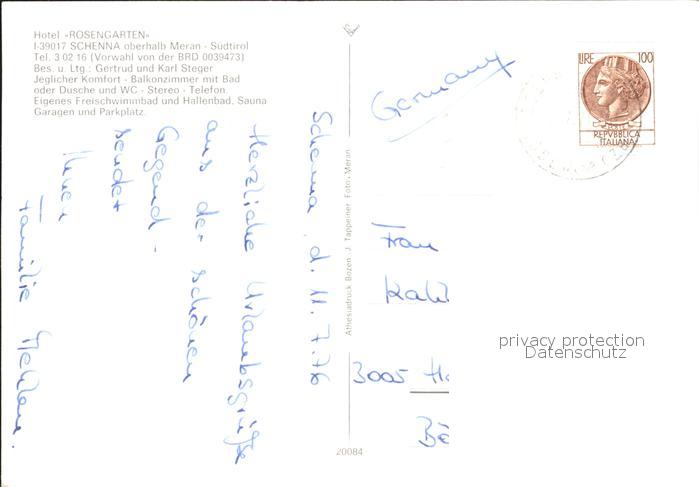 Hotel «ROSENGARTEN»
I-39017 SCHENNA oberhalb Meran - Südtirol
Tel. 3 02 16 (Vorwahl von der BRD 0039473)
Bes. u. Ltg.: Gertrud und Karl Steger
Jeglicher Komfort - Balkonzimmer mit Bad
oder Dusche und WC - Stereo - Telefon.
Eigenes Freischwimmbad und Hallenbad, Sauna
Garagen und Parkplatz.
Schenna, d. 11.7.76
Herzliche Urlaubsgrüße
aus der schönen
Gegend -
sendet
Ihnen
Familie
Athesiadruck Bozen - J. Tappeiner Foto - Meran
20084
Germany
LIRE 100
REPVBBLICA
ITALIANA
Frau
3005
privacy protection
Datenschutz